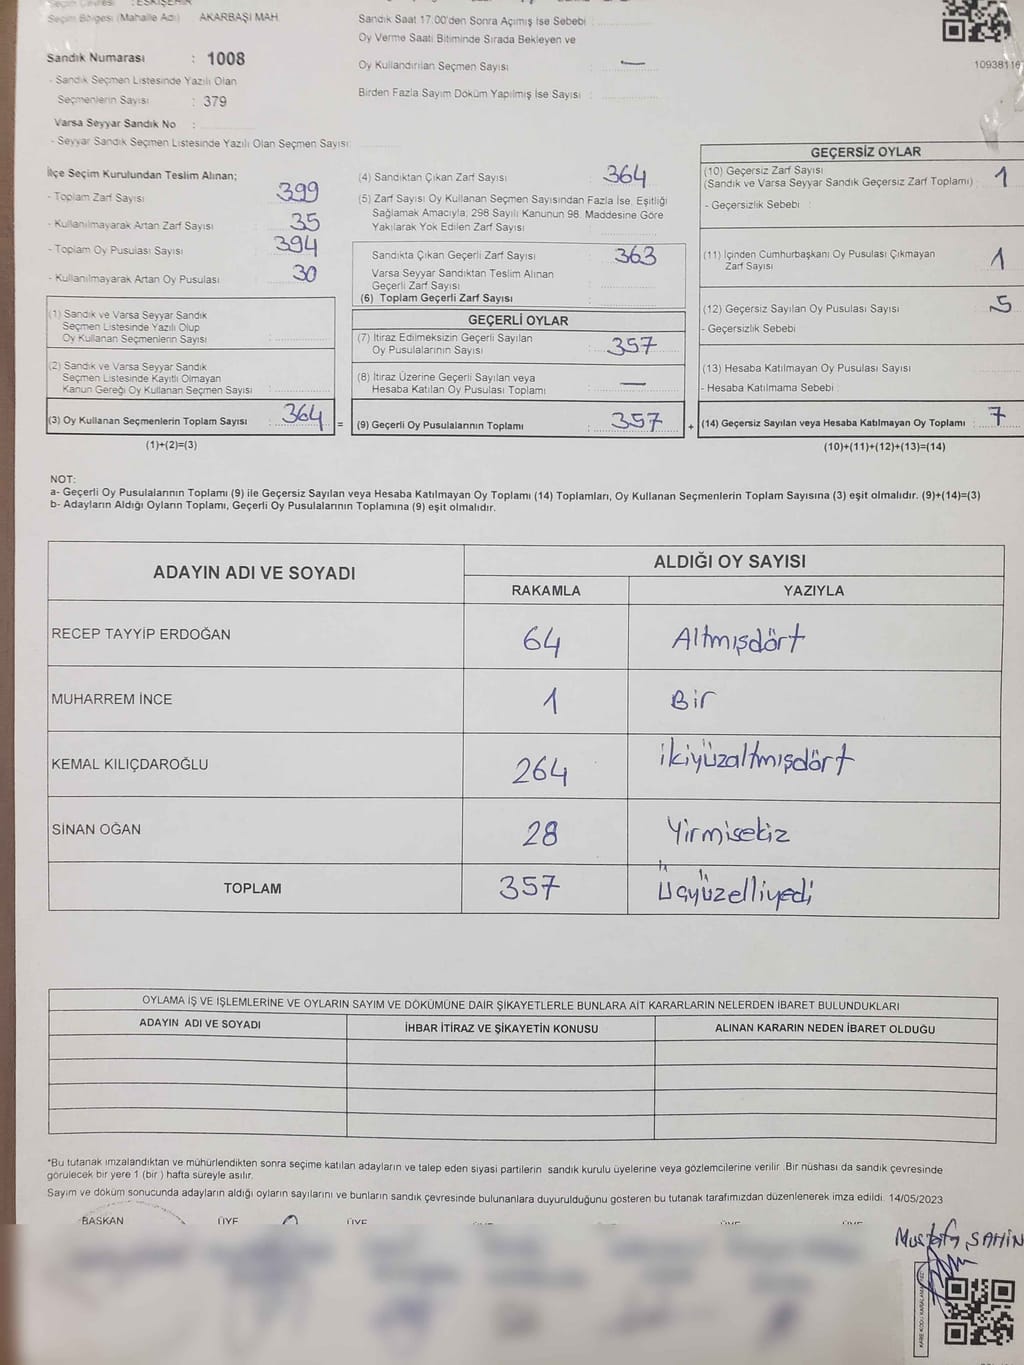 Seçim Çevresi : ESKİŞEHİR
Seçim Bölgesi (Mahalle Adı) AKARBAŞI MAH.
Sandık Numarası : 1008
- Sandık Seçmen Listesinde Yazılı Olan
Seçmenlerin Sayısı : 379
Varsa Seyyar Sandık No :
- Seyyar Sandık Seçmen Listesinde Yazılı Olan Seçmen Sayısı:
Sandık Saat 17.00'den Sonra Açımış İse Sebebi :
Oy Verme Saati Bitiminde Sırada Bekleyen ve
Oy Kullandırılan Seçmen Sayısı : —
Birden Fazla Sayım Döküm Yapılmış İse Sayısı :
10938116
İlçe Seçim Kurulundan Teslim Alınan;
- Toplam Zarf Sayısı : 399
- Kullanılmayarak Artan Zarf Sayısı : 35
- Toplam Oy Pusulası Sayısı : 394
- Kullanılmayarak Artan Oy Pusulası : 30
(1) Sandık ve Varsa Seyyar Sandık
Seçmen Listesinde Yazılı Olup
Oy Kullanan Seçmenlerin Sayısı :
(2) Sandık ve Varsa Seyyar Sandık
Seçmen Listesinde Kayıtlı Olmayan
Kanun Gereği Oy Kullanan Seçmen Sayısı :
(3) Oy Kullanan Seçmenlerin Toplam Sayısı : 364 =
(1)+(2)=(3)
(4) Sandıktan Çıkan Zarf Sayısı : 364
(5) Zarf Sayısı Oy Kullanan Seçmen Sayısından Fazla İse, Eşitliği
Sağlamak Amacıyla; 298 Sayılı Kanunun 98. Maddesine Göre
Yakılarak Yok Edilen Zarf Sayısı :
Sandıkta Çıkan Geçerli Zarf Sayısı : 363
Varsa Seyyar Sandıktan Teslim Alınan
Geçerli Zarf Sayısı :
(6) Toplam Geçerli Zarf Sayısı :
GEÇERLİ OYLAR
(7) İtiraz Edilmeksizin Geçerli Sayılan
Oy Pusulalarının Sayısı : 357
(8) İtiraz Üzerine Geçerli Sayılan veya
Hesaba Katılan Oy Pusulası Toplamı : —
(9) Geçerli Oy Pusulalarının Toplamı : 357 +
GEÇERSİZ OYLAR
(10) Geçersiz Zarf Sayısı : 1
(Sandık ve Varsa Seyyar Sandık Geçersiz Zarf Toplamı)
- Geçersizlik Sebebi :
(11) İçinden Cumhurbaşkanı Oy Pusulası Çıkmayan
Zarf Sayısı : 1
(12) Geçersiz Sayılan Oy Pusulası Sayısı : 5
- Geçersizlik Sebebi :
(13) Hesaba Katılmayan Oy Pusulası Sayısı :
- Hesaba Katılmama Sebebi :
(14) Geçersiz Sayılan veya Hesaba Katılmayan Oy Toplamı : 7
(10)+(11)+(12)+(13)=(14)
NOT:
a- Geçerli Oy Pusulalarının Toplamı (9) ile Geçersiz Sayılan veya Hesaba Katılmayan Oy Toplamı (14) Toplamları, Oy Kullanan Seçmenlerin Toplam Sayısına (3) eşit olmalıdır. (9)+(14)=(3)
b- Adayların Aldığı Oyların Toplamı, Geçerli Oy Pusulalarının Toplamına (9) eşit olmalıdır.
ADAYIN ADI VE SOYADI
ALDIĞI OY SAYISI
RAKAMLA YAZIYLA
RECEP TAYYİP ERDOĞAN 64 Altmışdört
MUHARREM İNCE 1 Bir
KEMAL KILIÇDAROĞLU 264 ikiyüzaltmışdört
SİNAN OĞAN 28 Yirmisekiz
TOPLAM 357 Üçyüzelliyedi
OYLAMA İŞ VE İŞLEMLERİNE VE OYLARIN SAYIM VE DÖKÜMÜNE DAİR ŞİKAYETLERLE BUNLARA AİT KARARLARIN NELERDEN İBARET BULUNDUKLARI
ADAYIN ADI VE SOYADI İHBAR İTİRAZ VE ŞİKAYETİN KONUSU ALINAN KARARIN NEDEN İBARET OLDUĞU
*Bu tutanak imzalandıktan ve mühürlendikten sonra seçime katılan adayların ve talep eden siyasi partilerin sandık kurulu üyelerine veya gözlemcilerine verilir. Bir nüshası da sandık çevresinde
görülecek bir yere 1 (bir ) hafta süreyle asılır.
Sayım ve döküm sonucunda adayların aldığı oyların sayılarını ve bunların sandık çevresinde bulunanlara duyurulduğunu gösteren bu tutanak tarafımızdan düzenlenerek imza edildi. 14/05/2023
BAŞKAN ÜYE ÜYE ÜYE ÜYE
Mustafa ŞAHİN